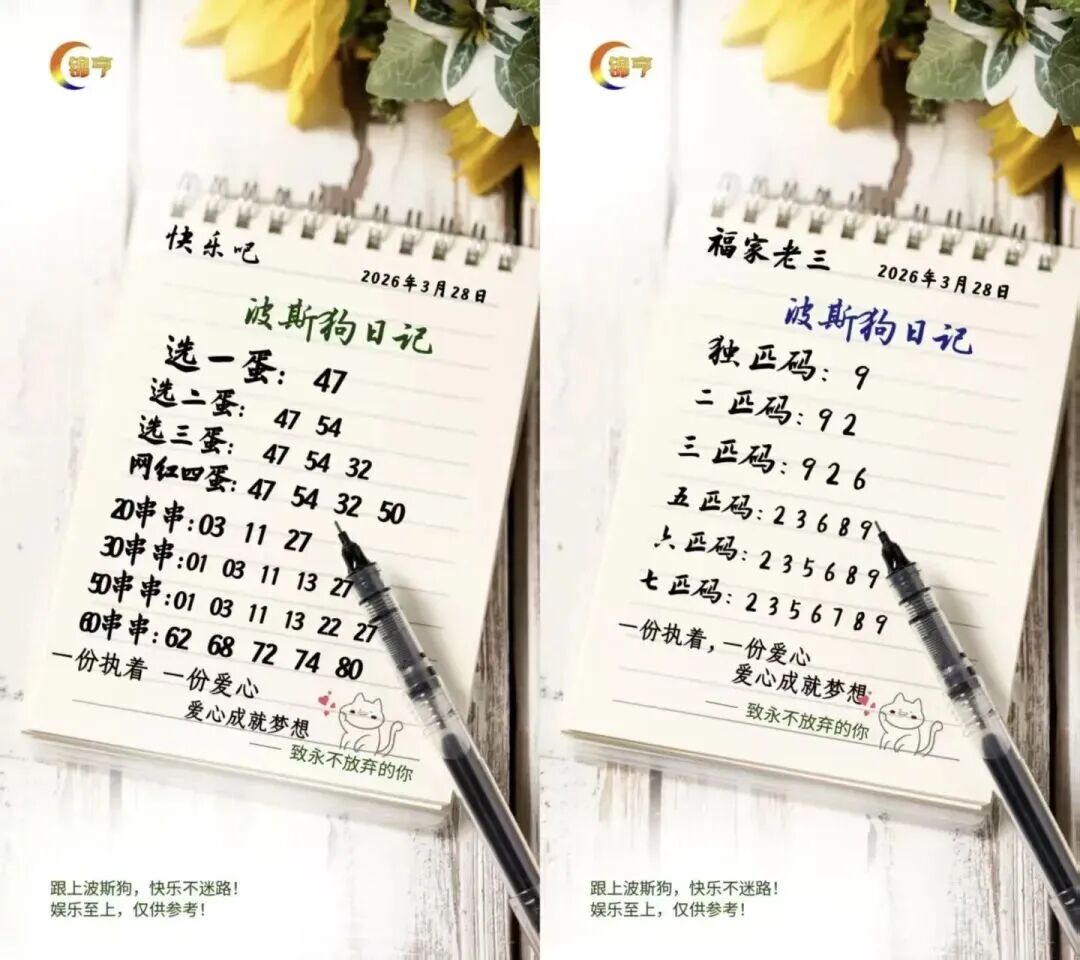 锦亨
快乐吧
2026年3月28日
波斯狗日记
选一蛋: 47
选二蛋: 47 54
选三蛋: 47 54 32
网红四蛋: 47 54 32 50
20串串:03 11 27
30串串:01 03 11 13 27
50串串:01 03 11 13 22 27
60串串:62 68 72 74 80
一份执着 一份爱心
爱心成就梦想
—— 致永不放弃的你
跟上波斯狗，快乐不迷路！
娱乐至上，仅供参考！
锦亨
福家老三
2026年3月28日
波斯狗日记
独匹码: 9
二匹码: 9 2
三匹码: 9 2 6
五匹码: 2 3 6 8 9
六匹码: 2 3 5 6 8 9
七匹码: 2 3 5 6 7 8 9
一份执着，一份爱心
爱心成就梦想
—— 致永不放弃的你
跟上波斯狗，快乐不迷路！
娱乐至上，仅供参考！